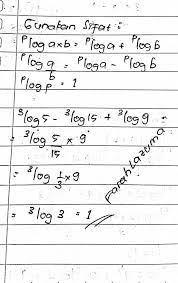 Gunakan Sifat :
ᵖlog a×b = ᵖlog a + ᵖlog b
ᵖlog a/b = ᵖlog a - ᵖlog b
ᵖlog p = 1
³log 5 - ³log 15 + ³log 9 =
= ³log 5/15 × 9
= ³log 1/3 × 9
= ³log 3 = 1
Farah Lazuma